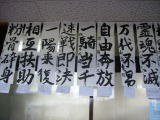 霊魂不滅
万代不易
自由奔放
一騎当千
速戦即決
一陽来復
相互扶助
粉骨砕身